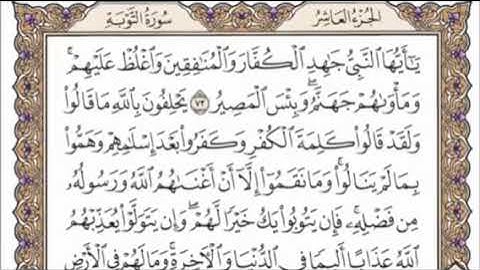 الجزء العاشر
سورة التوبة
يَٰٓأَيُّهَا ٱلنَّبِيُّ جَٰهِدِ ٱلْكُفَّارَ وَٱلْمُنَٰفِقِينَ وَٱغْلُظْ عَلَيْهِمْ ۚ
وَمَأْوَىٰهُمْ جَهَنَّمُ ۖ وَبِئْسَ ٱلْمَصِيرُ ٧٣ يَحْلِفُونَ بِٱللَّهِ مَا قَالُوا۟
وَلَقَدْ قَالُوا۟ كَلِمَةَ ٱلْكُفْرِ وَكَفَرُوا۟ بَعْدَ إِسْلَٰمِهِمْ وَهَمُّوا۟
بِمَا لَمْ يَنَالُوا۟ ۚ وَمَا نَقَمُوٓا۟ إِلَّآ أَنْ أَغْنَىٰهُمُ ٱللَّهُ وَرَسُولُهُۥ
مِن فَضْلِهِۦ ۚ فَإِن يَتُوبُوا۟ يَكُ خَيْرًا لَّهُمْ ۖ وَإِن يَتَوَلَّوْا۟ يُعَذِّبْهُمُ
ٱللَّهُ عَذَابًا أَلِيمًا فِى ٱلدُّنْيَا وَٱلْءَاخِرَةِ ۚ وَمَا لَهُمْ فِى ٱلْأَرْضِ